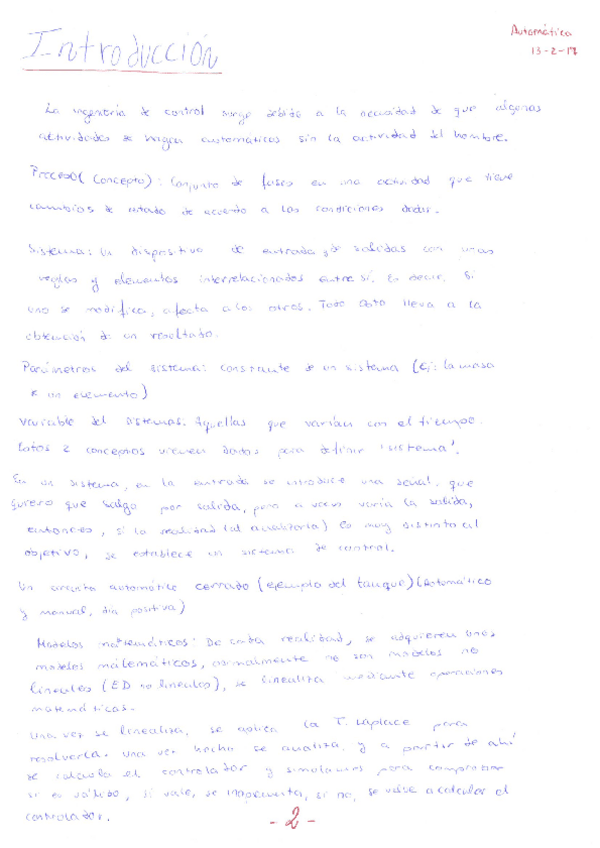 Automática
13-2-17
Introducción
La ingeniería de control surge debido a la necesidad de que algunas
actividades se hagan automáticas sin la actividad del hombre.
Proceso (Concepto): Conjunto de fases en una actividad que tiene
cambios de estado de acuerdo a las condiciones dadas.
Sistema: Un dispositivo de entrada y de salidas con unas
reglas y elementos interrelacionados entre sí, es decir, si
uno se modifica, afecta a los otros. Todo esto lleva a la
obtención de un resultado.
Parámetros del sistema: constante de un sistema (Ej: la masa
de un elemento)
Variable del sistemas: Aquellas que varían con el tiempo.
Estos 2 conceptos vienen dados para definir 'sistema'.
En un sistema, en la entrada se introduce una señal, que
quiero que salga por salida, pero a veces varía la salida,
entonces, si la realidad (al analizarla) es muy distinto al
objetivo, se establece un sistema de control.
Un circuito automático cerrado (ejemplo del tanque) (automático
y manual, dia positiva)
Modelos matemáticos: De cada realidad, se adquieren unos
modelos matemáticos, normalmente no son modelos no
lineales (ED no lineales), se linealiza mediante operaciones
matemáticas.
Una vez se linealiza, se aplica la T. Laplace para
resolverla. Una vez hecho se analiza, y a partir de ahí
se calcula el controlador y simulamos para comprobar
si es válido, si vale, se implementa, si no, se vuelve a calcular el
controlador.
- 2 -